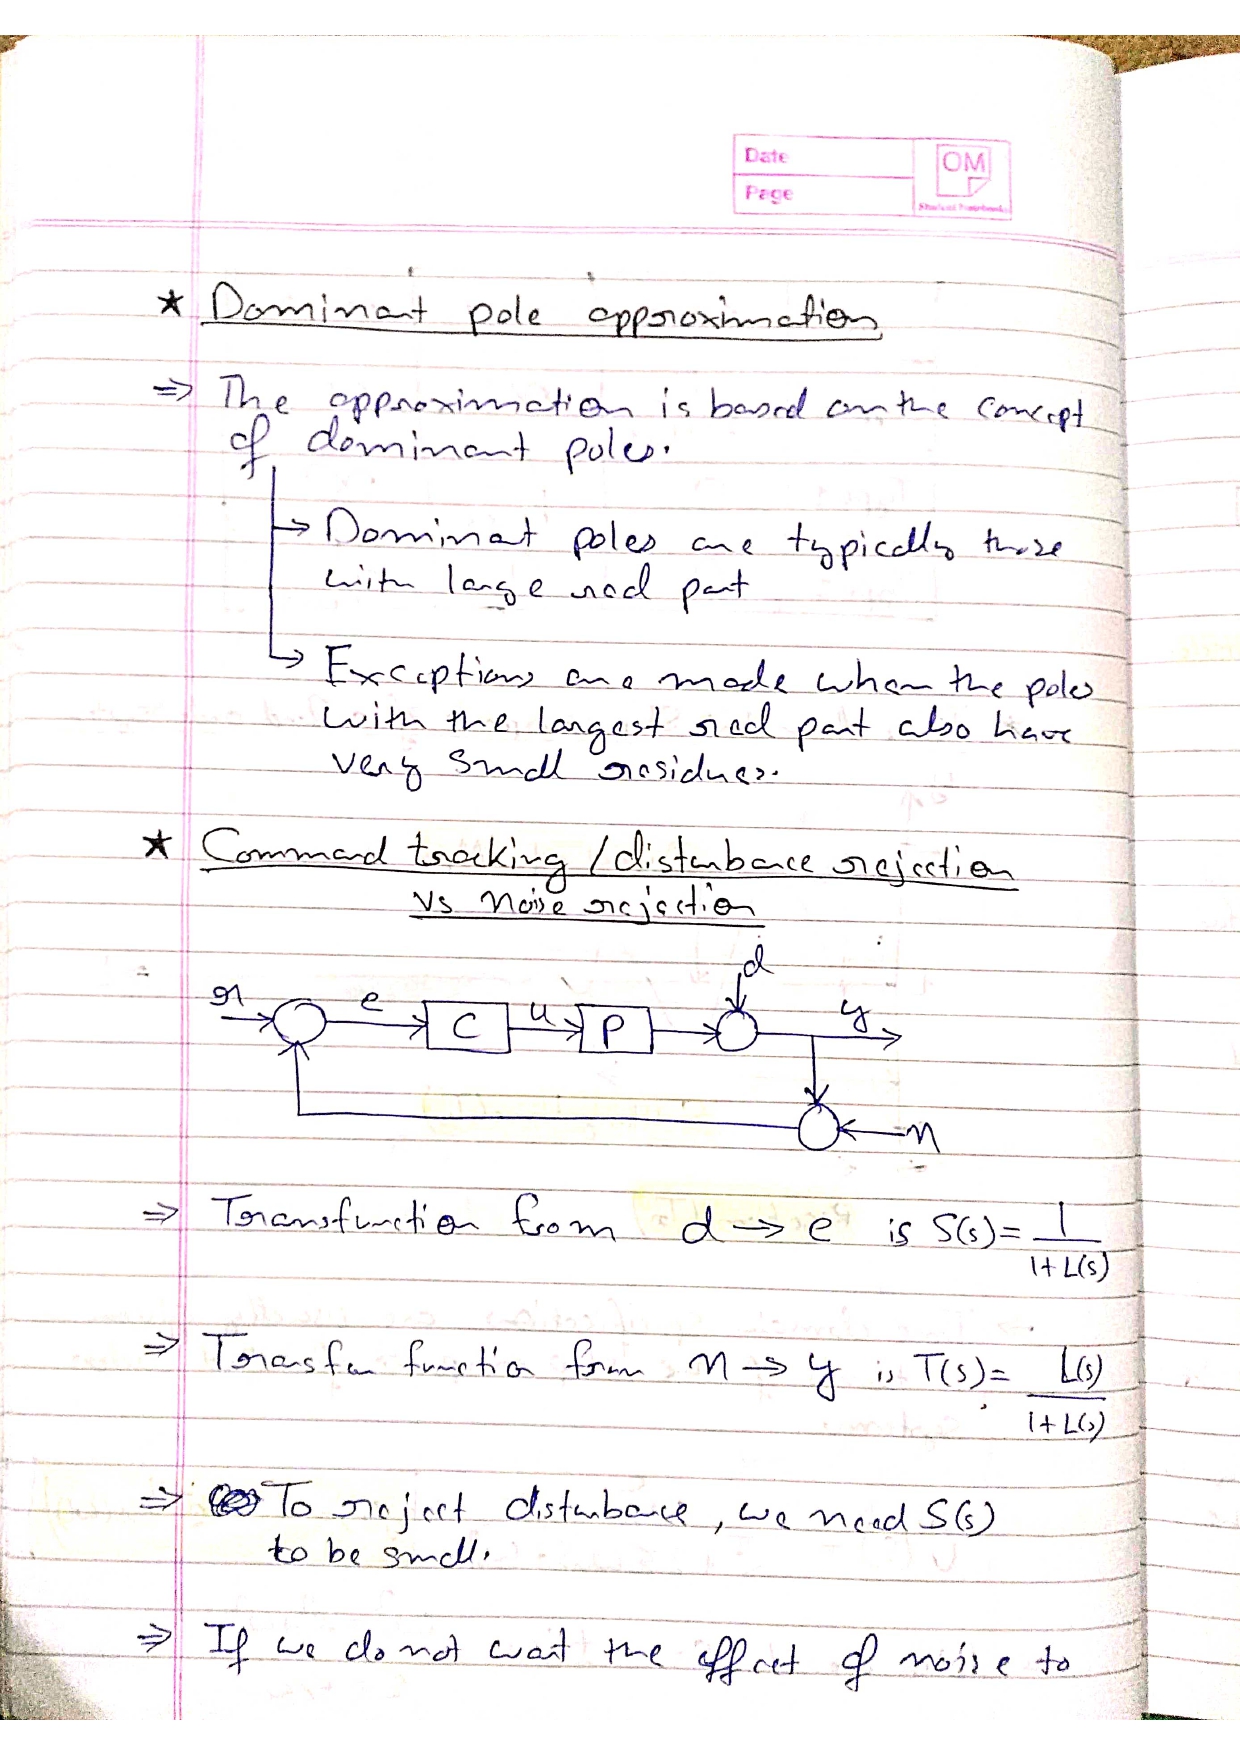 Date
OM
Page
Student Notebooks
★ Dominant pole approximation
⇒ The approximation is based on the concept
of dominant poles.
→ Dominat poles are typically those
with large real part
→ Exceptions are made when the poles
with the largest real part also have
very small residues.
★ Command tracking / disturbance rejection
vs Noise rejection
d
r e C u P y
n
⇒ Transfunction from d → e is S(s) = 1/(1+L(s))
⇒ Transfer function from n → y is T(s) = L(s)/(1+L(s))
⇒ To reject disturbance, we need S(s)
to be small.
⇒ If we do not want the effect of noise to